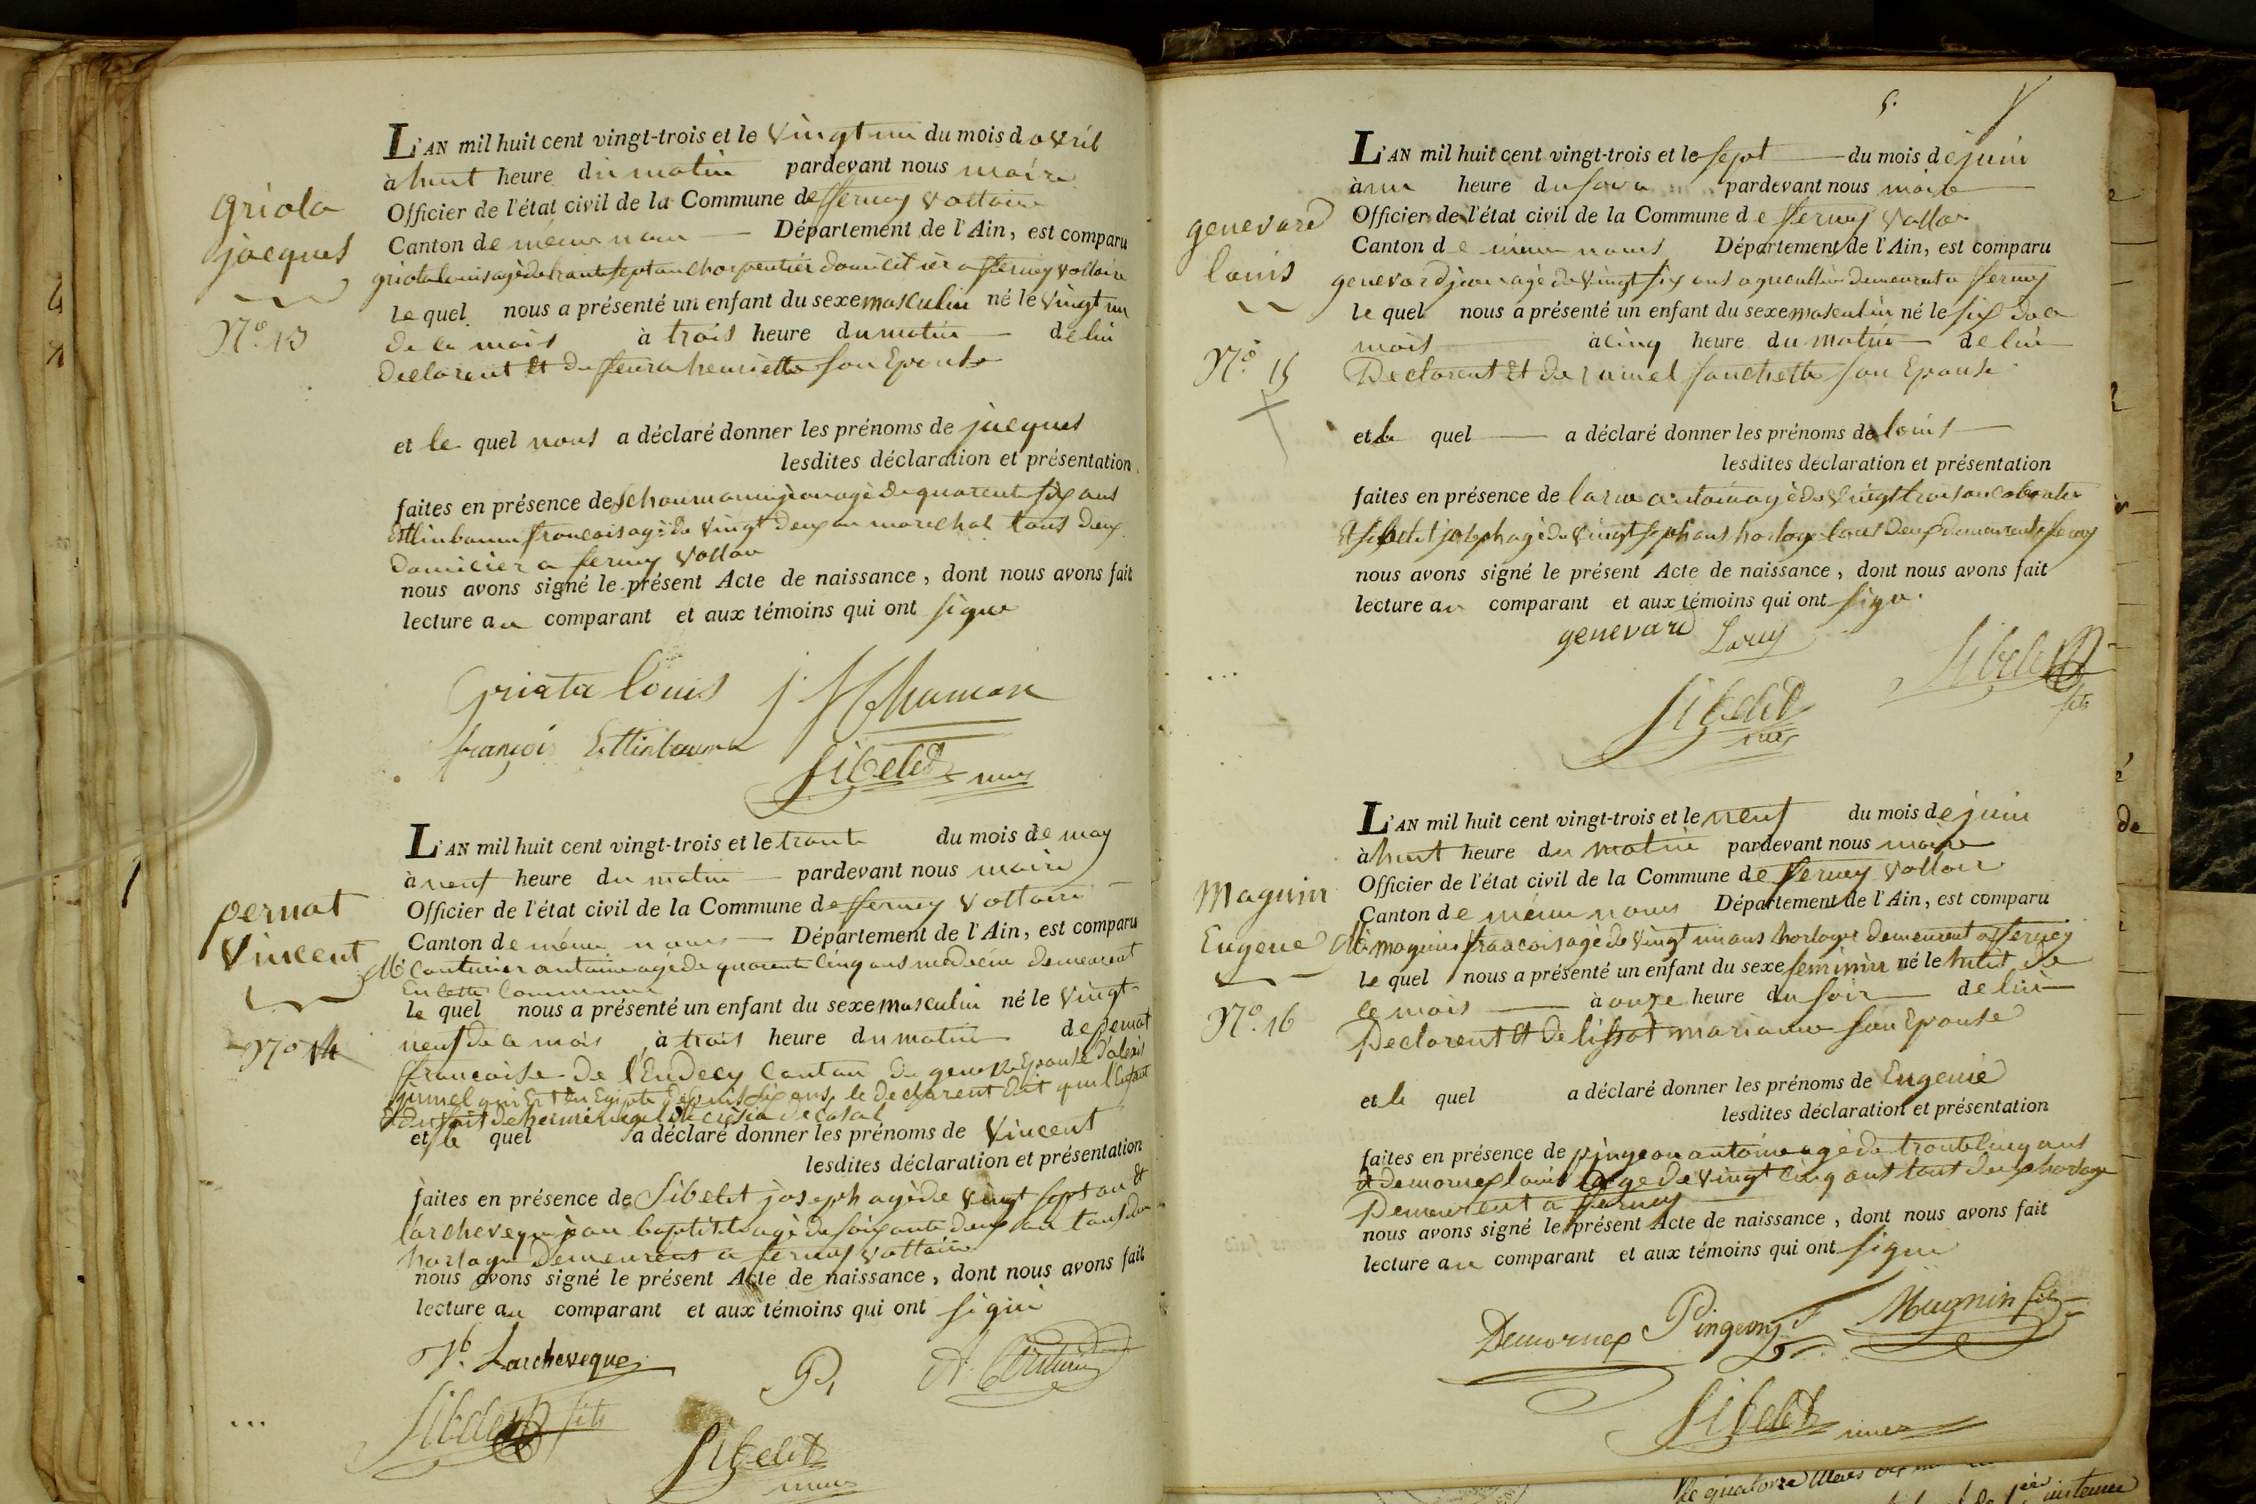 griola
jacques
N.o 13
L'AN mil huit cent vingt-trois et le vingt un du mois d avril
à huit heure du matin pardevant nous maire
Officier de l'état civil de la Commune de ferney voltaire
Canton de même nom Département de l'Ain, est comparu
griola louis agé de trante sept an charpentier domicilier a ferney voltaire
le quel nous a présenté un enfant du sexe masculin né le vingt un
de ce mois à trois heure du matin de lui
Declarent et de henriette son Epouse
et le quel nous a déclaré donner les prénoms de jacques
lesdites déclaration et présentation
faites en présence de Schoumann jean agé de quarente six ans
Ettlinbaum francois agé de vingt deux an marechal tous deux
domicier a ferney voltair
nous avons signé le présent Acte de naissance, dont nous avons fait
lecture au comparant et aux témoins qui ont signe
Griata louis
françois Ettinbaum
Sibelet maire
pernat
Vincent
N.o 14
L'AN mil huit cent vingt-trois et le trante du mois de may
à neuf heure du matin pardevant nous maire
Officier de l'état civil de la Commune de fferney voltaire
Canton de même nom Département de l'Ain, est comparu
Mr Couturier antoine agé de quarente cinq ans medecin demeurent
En cette Commune
le quel nous a présenté un enfant du sexe masculin né le vingt
neuf de ce mois à trois heure du matin de pernat
francoise de Canton de geneve Epouse d'alexis
qui Est En Egipte depuis six ans, le declarent dit que l'Enfant
Est du fait de
et le quel a déclaré donner les prénoms de Vincent
lesdites déclaration et présentation
faites en présence de Sibelet joseph agé de vingt sept an &
larcheveque jean baptiste agé de soixante deux an tous deux
horloger demeurent a ferney voltaire
nous avons signé le présent Acte de naissance, dont nous avons fait
lecture au comparant et aux témoins qui ont signé
Larcheveque
Sibelet fils
Sibelet maire
5.
genevard
louis
N.o 15
L'AN mil huit cent vingt-trois et le sept du mois de juin
à un heure du soir pardevant nous maire
Officier de l'état civil de la Commune de ferney voltair
Canton de même nom Département de l'Ain, est comparu
genevard jean agé de vingt six ans agriculteur demeurent a ferney
le quel nous a présenté un enfant du sexe masculin né le six de ce
mois à cinq heure du matin de lui
Declarent et de fanchette son Epouse
et le quel a déclaré donner les prénoms de louis
lesdites déclaration et présentation
faites en présence de antoine agé de vingt trois an
Et Sibelet joseph agé de vingt sept ans horloger tous deux demeurent a ferney
nous avons signé le présent Acte de naissance, dont nous avons fait
lecture au comparant et aux témoins qui ont signe.
genevard
Sibelet fils
Sibelet maire
Magnin
Eugenie
N.o 16
L'AN mil huit cent vingt-trois et le neuf du mois de juin
à huit heure du matin pardevant nous maire
Officier de l'état civil de la Commune de ferney voltair
Canton de même nom Département de l'Ain, est comparu
magnin francois agé de vingt un ans horloger demeurent a fferney
le quel nous a présenté un enfant du sexe feminin né le huit de
ce mois à onze heure du soir de lui
Declarent et de lissot marianne son Epouse
et le quel a déclaré donner les prénoms de Eugenie
lesdites déclaration et présentation
faites en présence de pingeon antoine agé de trante cinq ans
et demornex louis agé de vingt cinq ans tout deux horloger
Demeurent a ferney
nous avons signé le présent Acte de naissance, dont nous avons fait
lecture au comparant et aux témoins qui ont signe
Demornex
Pingeon
Magnin fils
Sibelet maire